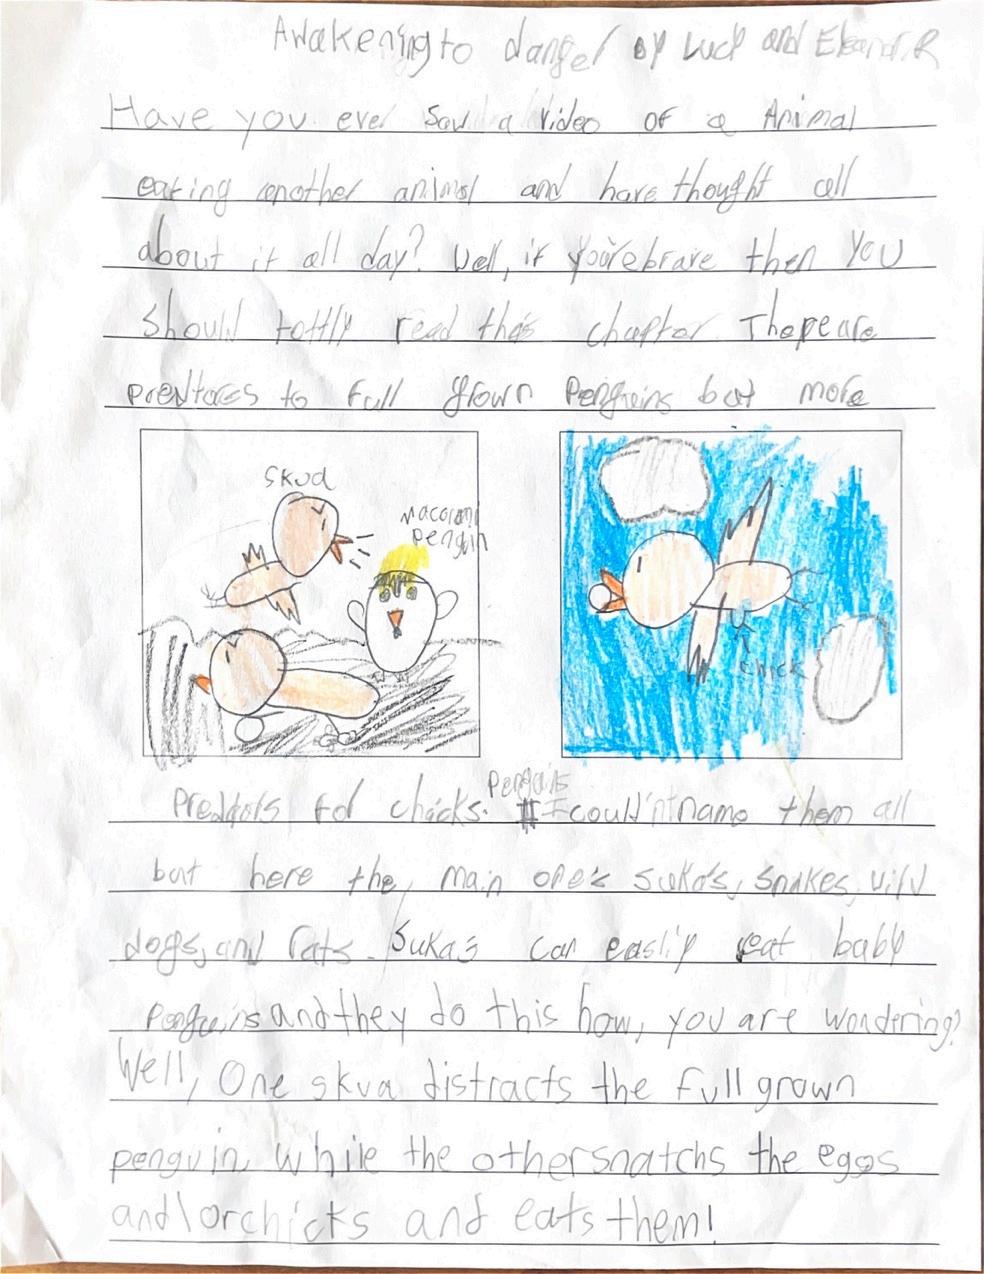 Awakening to danger by Luck and Eleanor.R
Have you ever saw a video of a Animal
eating another animal and have thought all
about it all day? Well, if you're brave then you
Should tottly read this chapter. There are
predtores to full grown Penguins but more
skua
macoroni
penguin
chick
Predators for chicks. Penguins
I could'nt name them all
but here the main one's suka's, snakes, wild
dogs, and rats. Suka's can easliy eat baby
penguins and they do this how, you are wondering?
Well, One skua distracts the full grown
penguin, while the other snatchs the eggs
and\or chicks and eats them!